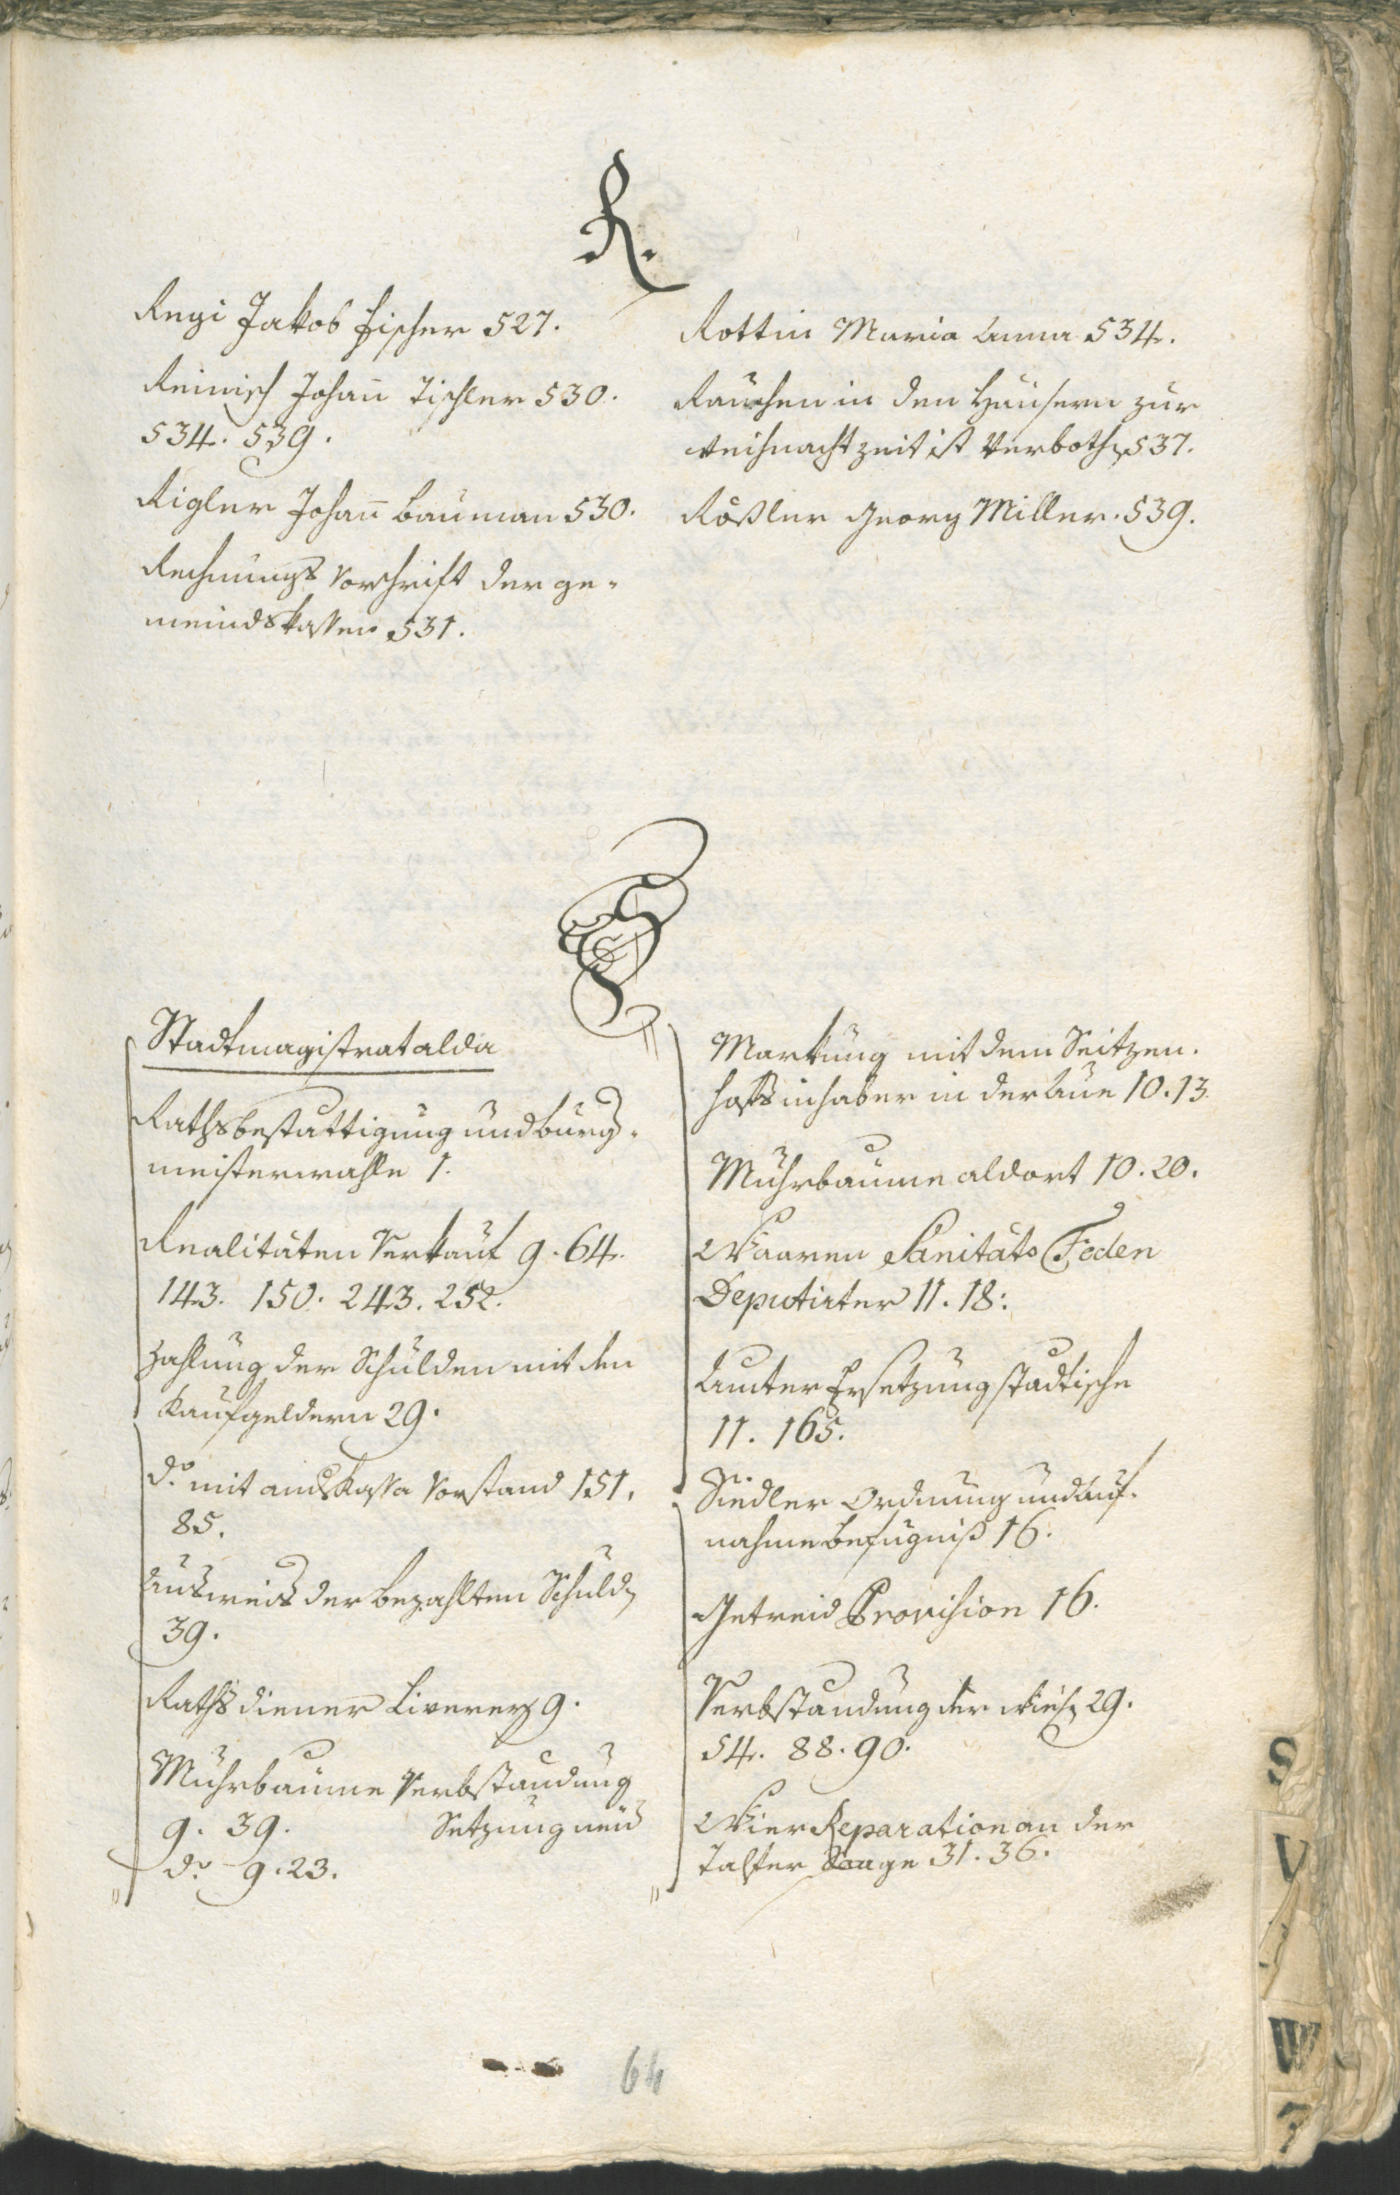 R.
Regi Jakob Fischer 527.
Reinisch Johan̄ Tischler 530.
534. 539.
Rigler Johan̄ Bauman 530.
Rechnungs Vorschrift der ge-
meindskassen 531.
Rottin Maria Anna 534.
Rauchen in den Häusern zur
Weihnachtzeit ist Verbothen 537.
Rößler Georg Miller. 539.
S
Stadtmagistrat alda
Rathsbestättigung und Burger-
meisterwahle 1.
Realitäten Verkauf 9. 64.
143. 150. 243. 252.
Zahlung der Schulden mit den
Kaufgeldern 29.
do mit Kassa Vorstand 151.
85.
Ausweis der bezahlten Schulden
39.
Rathsdiener Liveren 9.
Muhrbäume Verbstandung
9. 39. Setzung neue
do 9. 23.
Markung mit dem Seitzen-
hofsinhaber in der Aue 10. 13.
Muhrbäume aldort 10. 20.
Waaren Sanitäts Feden
Deputirter 11. 18:
Aemter Ersetzung stadtische
11. 165.
Siedler Ordnung und Auf-
nahme Befugniß 16.
Getreid Provision 16.
Verbstandung der Wiesen 29.
54. 88. 90.
Wier Reparation an der
Talfer 31. 36.
64
S
V
W
Z